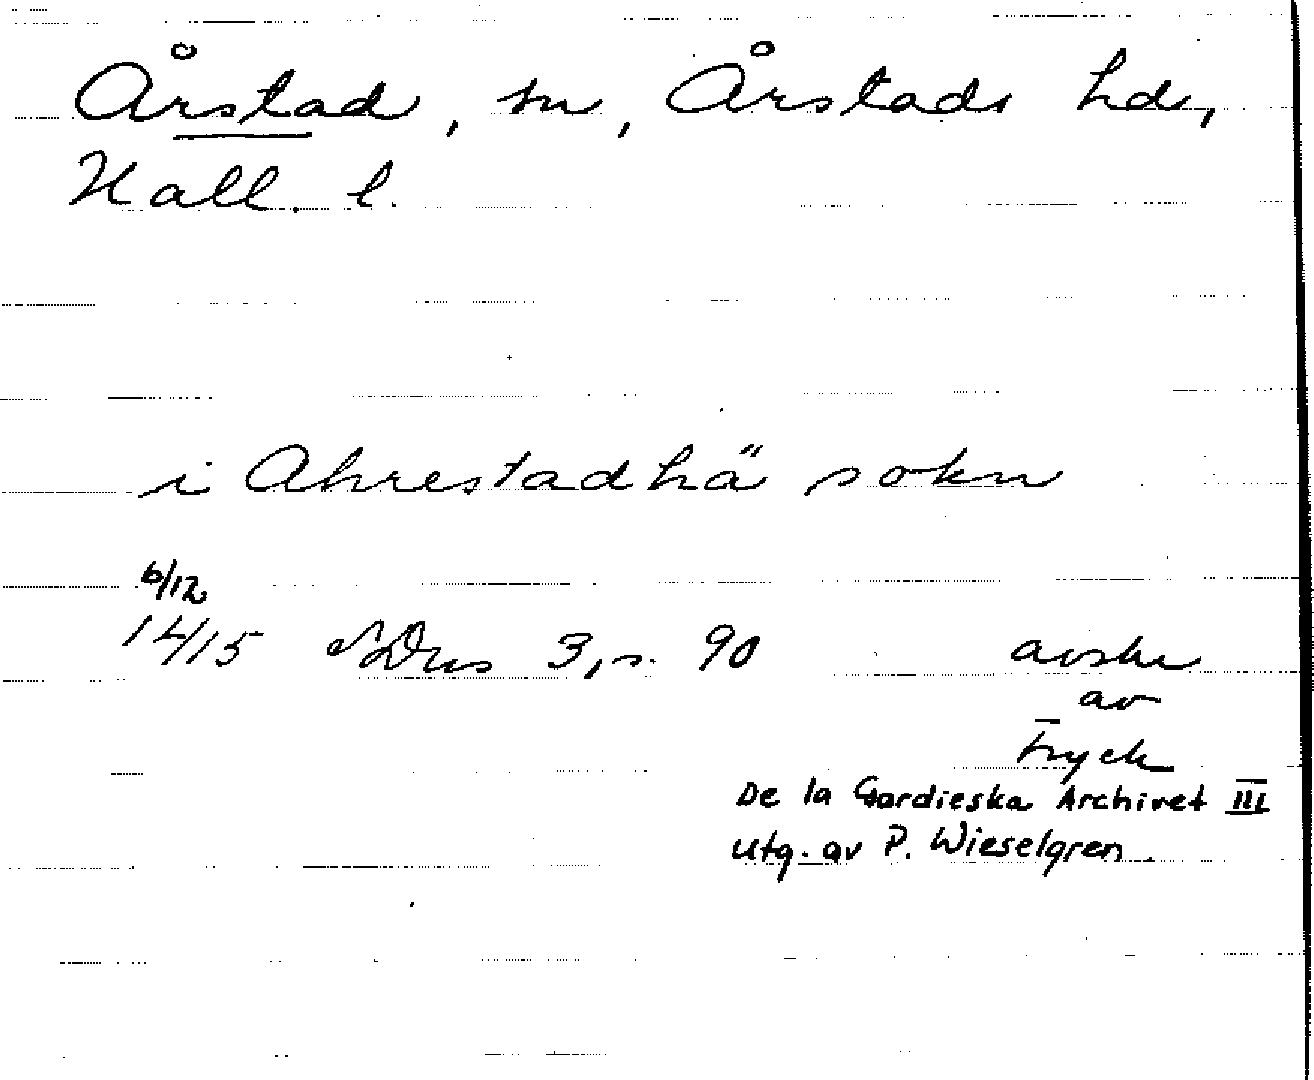 Årstad, sn, Årstads hd,
Hall. l.
i Ahrestadhä sokn
6/12
1415 SDns 3, s. 90
avskr
av
tryck
De la Gardieska Archivet III
utg. av P. Wieselgren